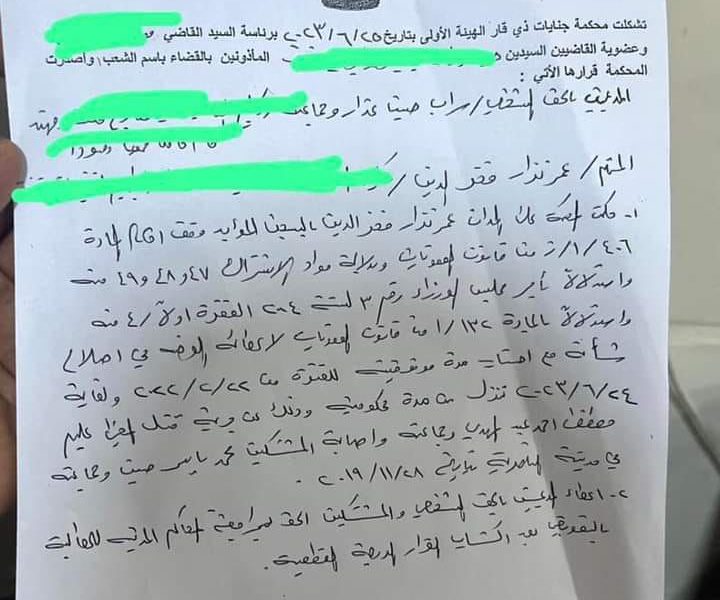 تشكلت محكمة جنايات ذي قار الهيئة الأولى بتاريخ ٢٠٢٣/٦/٢٥ برئاسة السيد القاضي
وعضوية القاضيين السيدين المأذونين بالقضاء باسم الشعب وأصدرت
المحكمة قرارها الآتي :
المدعين بالحق الشخصي/ عذار وجماعته
المتهم/ عمر نزار فخر الدين /
١- حكمت المحكمة على المدان عمر نزار فخر الدين بالسجن المؤبد وفق المادة
٤٠٦/١/ز من قانون العقوبات وبدلالة مواد الاشتراك ٤٧ و ٤٨ و ٤٩ منه
واستدلالاً بأمر مجلس الوزراء رقم ٣ لسنة ٢٠٠٤ الفقرة اولاً/٤ منه
واستدلالاً بالمادة ١٣٢/١ من قانون العقوبات لاعطائه الفرصة في اصلاح
شأنه مع احتساب مدة موقوفيته للفترة من ٢٠٢٢/٢/٢٢ ولغاية
٢٠٢٣/٦/٢٤ تنزل من مدة محكوميته وذلك عن جريمة قتل المجنى عليهم
مصطفى احمد عبد الهدي وجماعته واصابة المشتكين محمد ياسر وجماعته
في مدينة الناصرية بتاريخ ٢٠١٩/١١/٢٨ .
٢- اعطاء المدعين بالحق الشخصي والمشتكين الحق بمراجعة المحاكم المدنية للمطالبة
بالتعويض بعد اكتساب القرار الدرجة القطعية.